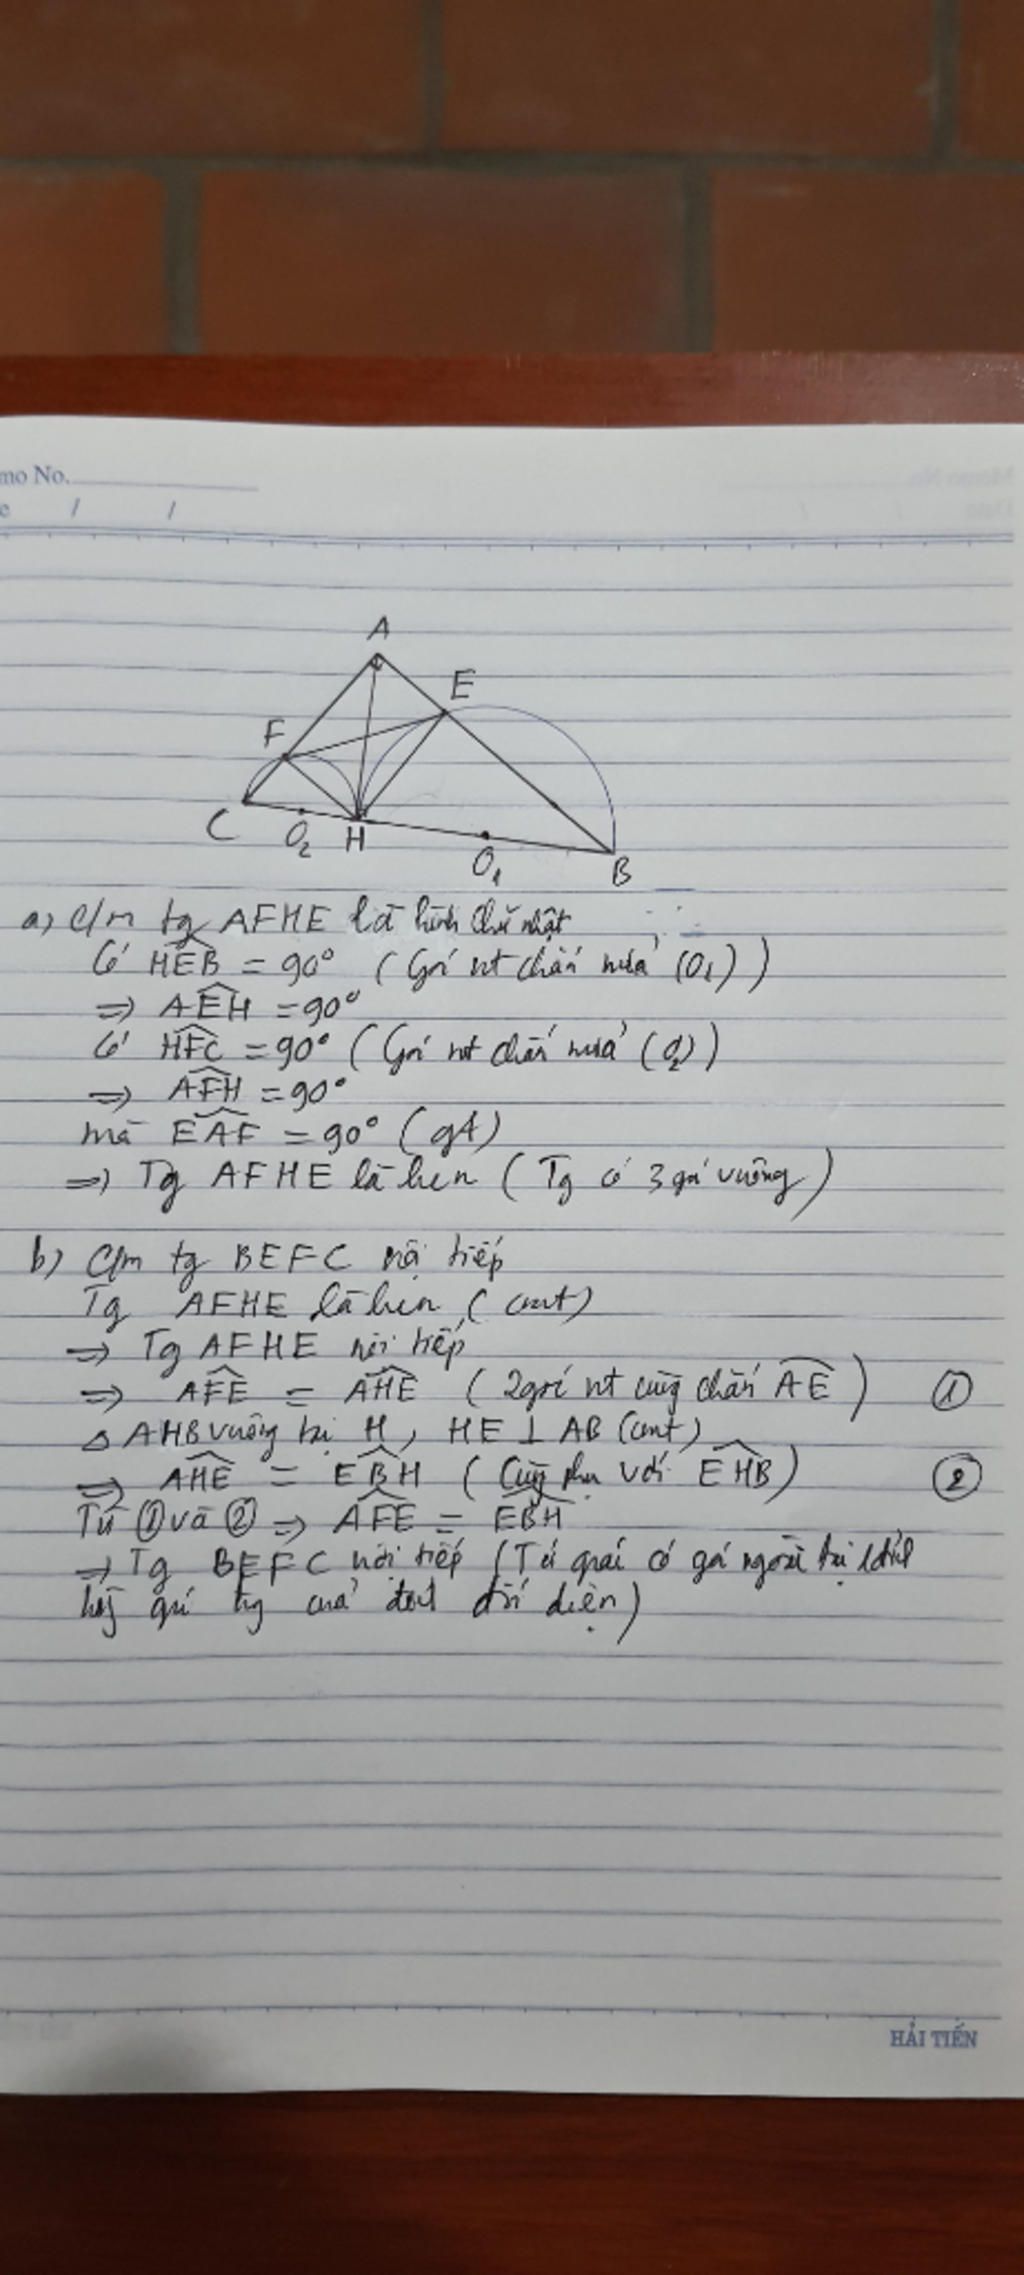 mo No.
e / /
A
E
F
C
O₂
H
O₁
B
a) C/m tg AFHE là hình chữ nhật
Có HEB = 90° (Góc nt chắn nửa (O₁))
=> AEH = 90°
Có HFC = 90° (Góc nt chắn nửa (O₂)
=> AFH = 90°
mà EAF = 90° (gt)
=> Tg AFHE là hcn (Tg có 3 góc vuông)
b) C/m tg BEFC nội tiếp
Tg AFHE là hcn (cmt)
=> Tg AFHE nội tiếp
=> AFE = AHE (2 góc nt cùng chắn AE) ①
△ AHB vuông tại H, HE ⊥ AB (cmt)
=> AHE = EBH (Cùng phụ với EHB) ②
Từ ① và ② => AFE = EBH
=> Tg BEFC nội tiếp (Tứ giác có góc ngoài tại 1 đỉnh
bằng góc trg của đỉnh đối diện)
HẢI TIẾN